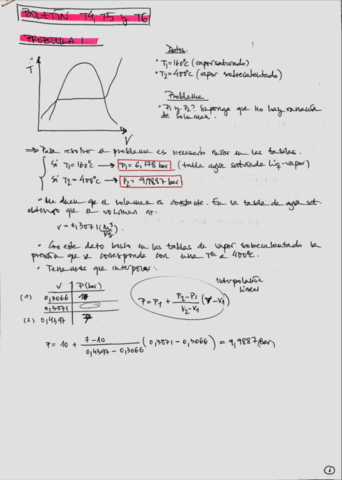 BOLETÍN T4, T5 y T6
PROBLEMA 1
T
V
Datos
• T₁=160ºC (vapor saturado)
• T₂=400ºC (vapor sobrecalentado)
Problema
• P₁ y P₂? Suponga que no hay variación de volumen.
⇒ Para resolver el problema es necesario mirar en las tablas.
Si T₁=160ºC → P₁ = 6,178 bar (tabla agua saturada liq-vapor)
Si T₂=400ºC → P₂ = 9,9887 bar
• Me dicen que el volumen es constante. En la tabla de agua sat.
obtengo que el volumen es:
v=0,3071 (m³/kg)
• Con este dato busco en las tablas de vapor sobrecalentado la
presión que se corresponde con una Tª de 400ºC.
• Tenemos que interpolar:
V P(bar)
(1) 0,3066 10
0,3071
(2) 0,4397 7
Interpolación
lineal
P = P₁ + P₂-P₁/V₂-V₁ (V-V₁)
P = 10 + 7-10/0,4397-0,3066 (0,3071-0,3066) = 9,9887 (bar)
1